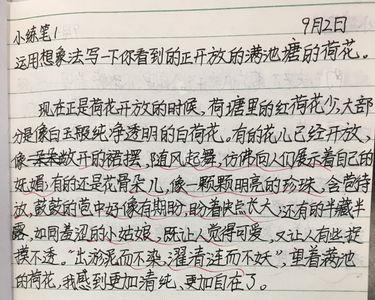 小练笔1 9月2日
运用想象法写一下你看到的正开放的满池塘的荷花。
现在正是荷花开放的时候,荷塘里的红荷花少,大部
分是像白玉般纯净透明的白荷花。有的花儿已经开放,
像一朵朵散开的裙摆,随风起舞,仿佛向人们展示着自己的
妩媚;有的还是花骨朵儿,像一颗颗明亮的珍珠,含苞待
放,鼓鼓的苞中好像有期盼,盼着快点长大;还有的半藏半
露,如同羞涩的小姑娘,既让人觉得可爱,又让人有些捉
摸不透。"出淤泥而不染,濯清涟而不妖",望着满池
的荷花,我感到更加清纯、更加自在了。